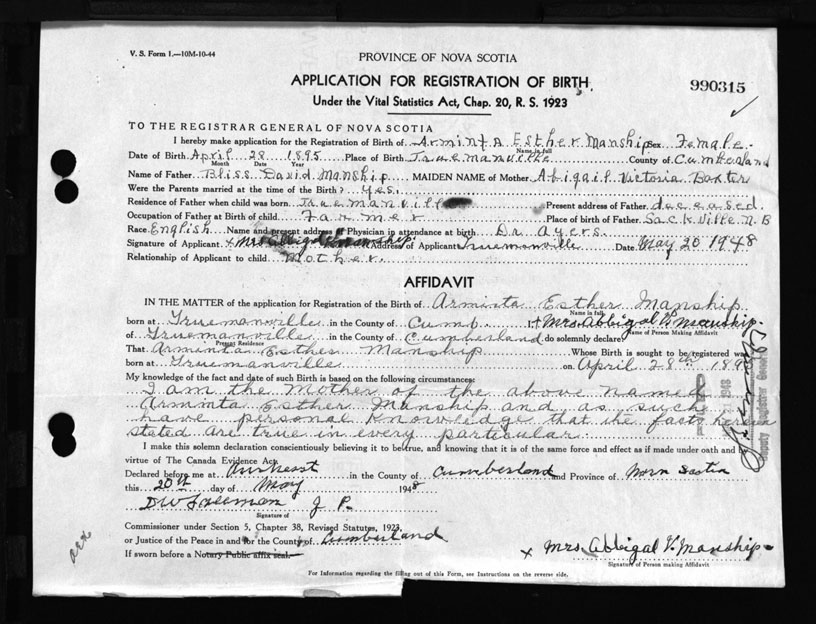 V. S. Form 1.—10M-10-44
PROVINCE OF NOVA SCOTIA
APPLICATION FOR REGISTRATION OF BIRTH
990315
Under the Vital Statistics Act, Chap. 20, R. S. 1923
TO THE REGISTRAR GENERAL OF NOVA SCOTIA
I hereby make application for the Registration of Birth of Arminta Esther Manship Sex Female
Name in full
Date of Birth April 28 1895 Place of Birth Truemanville County of Cumberland
Month Date Year
Name of Father Bliss David Manship MAIDEN NAME of Mother Abigail Victoria Baxter
Were the Parents married at the time of the Birth? Yes.
Residence of Father when child was born Truemanville Present address of Father deceased.
Occupation of Father at Birth of child Farmer Place of birth of Father Sackville N.B
Race English Name and present address of Physician in attendance at birth Dr Ayers.
Signature of Applicant x Mrs Abbigal Manship Address of Applicant Truemanville Date May 20 1948
Relationship of Applicant to child Mother.
AFFIDAVIT
IN THE MATTER of the application for Registration of the Birth of Arminta Esther Manship
Name in full
born at Truemanville in the County of Cumb. I, x Mrs. Abbigal V. Manship.
Name of Person Making Affidavit
of Truemanville in the County of Cumberland do solemnly declare
Present Residence
That Arminta Esther Manship Whose Birth is sought to be registered was
born at Truemanville on April 28th 189
My knowledge of the fact and date of such Birth is based on the following circumstances:
I am the Mother of the above named
Arminta Esther Manship and as such
have personal knowledge that the facts herein
stated are true in every particular.
I make this solemn declaration conscientiously believing it to be true, and knowing that it is of the same force and effect as if made under oath and by
virtue of The Canada Evidence Act.
Declared before me at Amherst in the County of Cumberland and Province of Nova Scotia
this 20th day of May 1948
J P.
Signature of
Commissioner under Section 5, Chapter 38, Revised Statutes, 1923,
or Justice of the Peace in and for the County of Cumberland
If sworn before a Notary Public affix seal.
x Mrs. Abbigal V. Manship
Signature of Person making Affidavit
For Information regarding the filling out of this Form, see Instructions on the reverse side.
Deputy Registrar General
1948